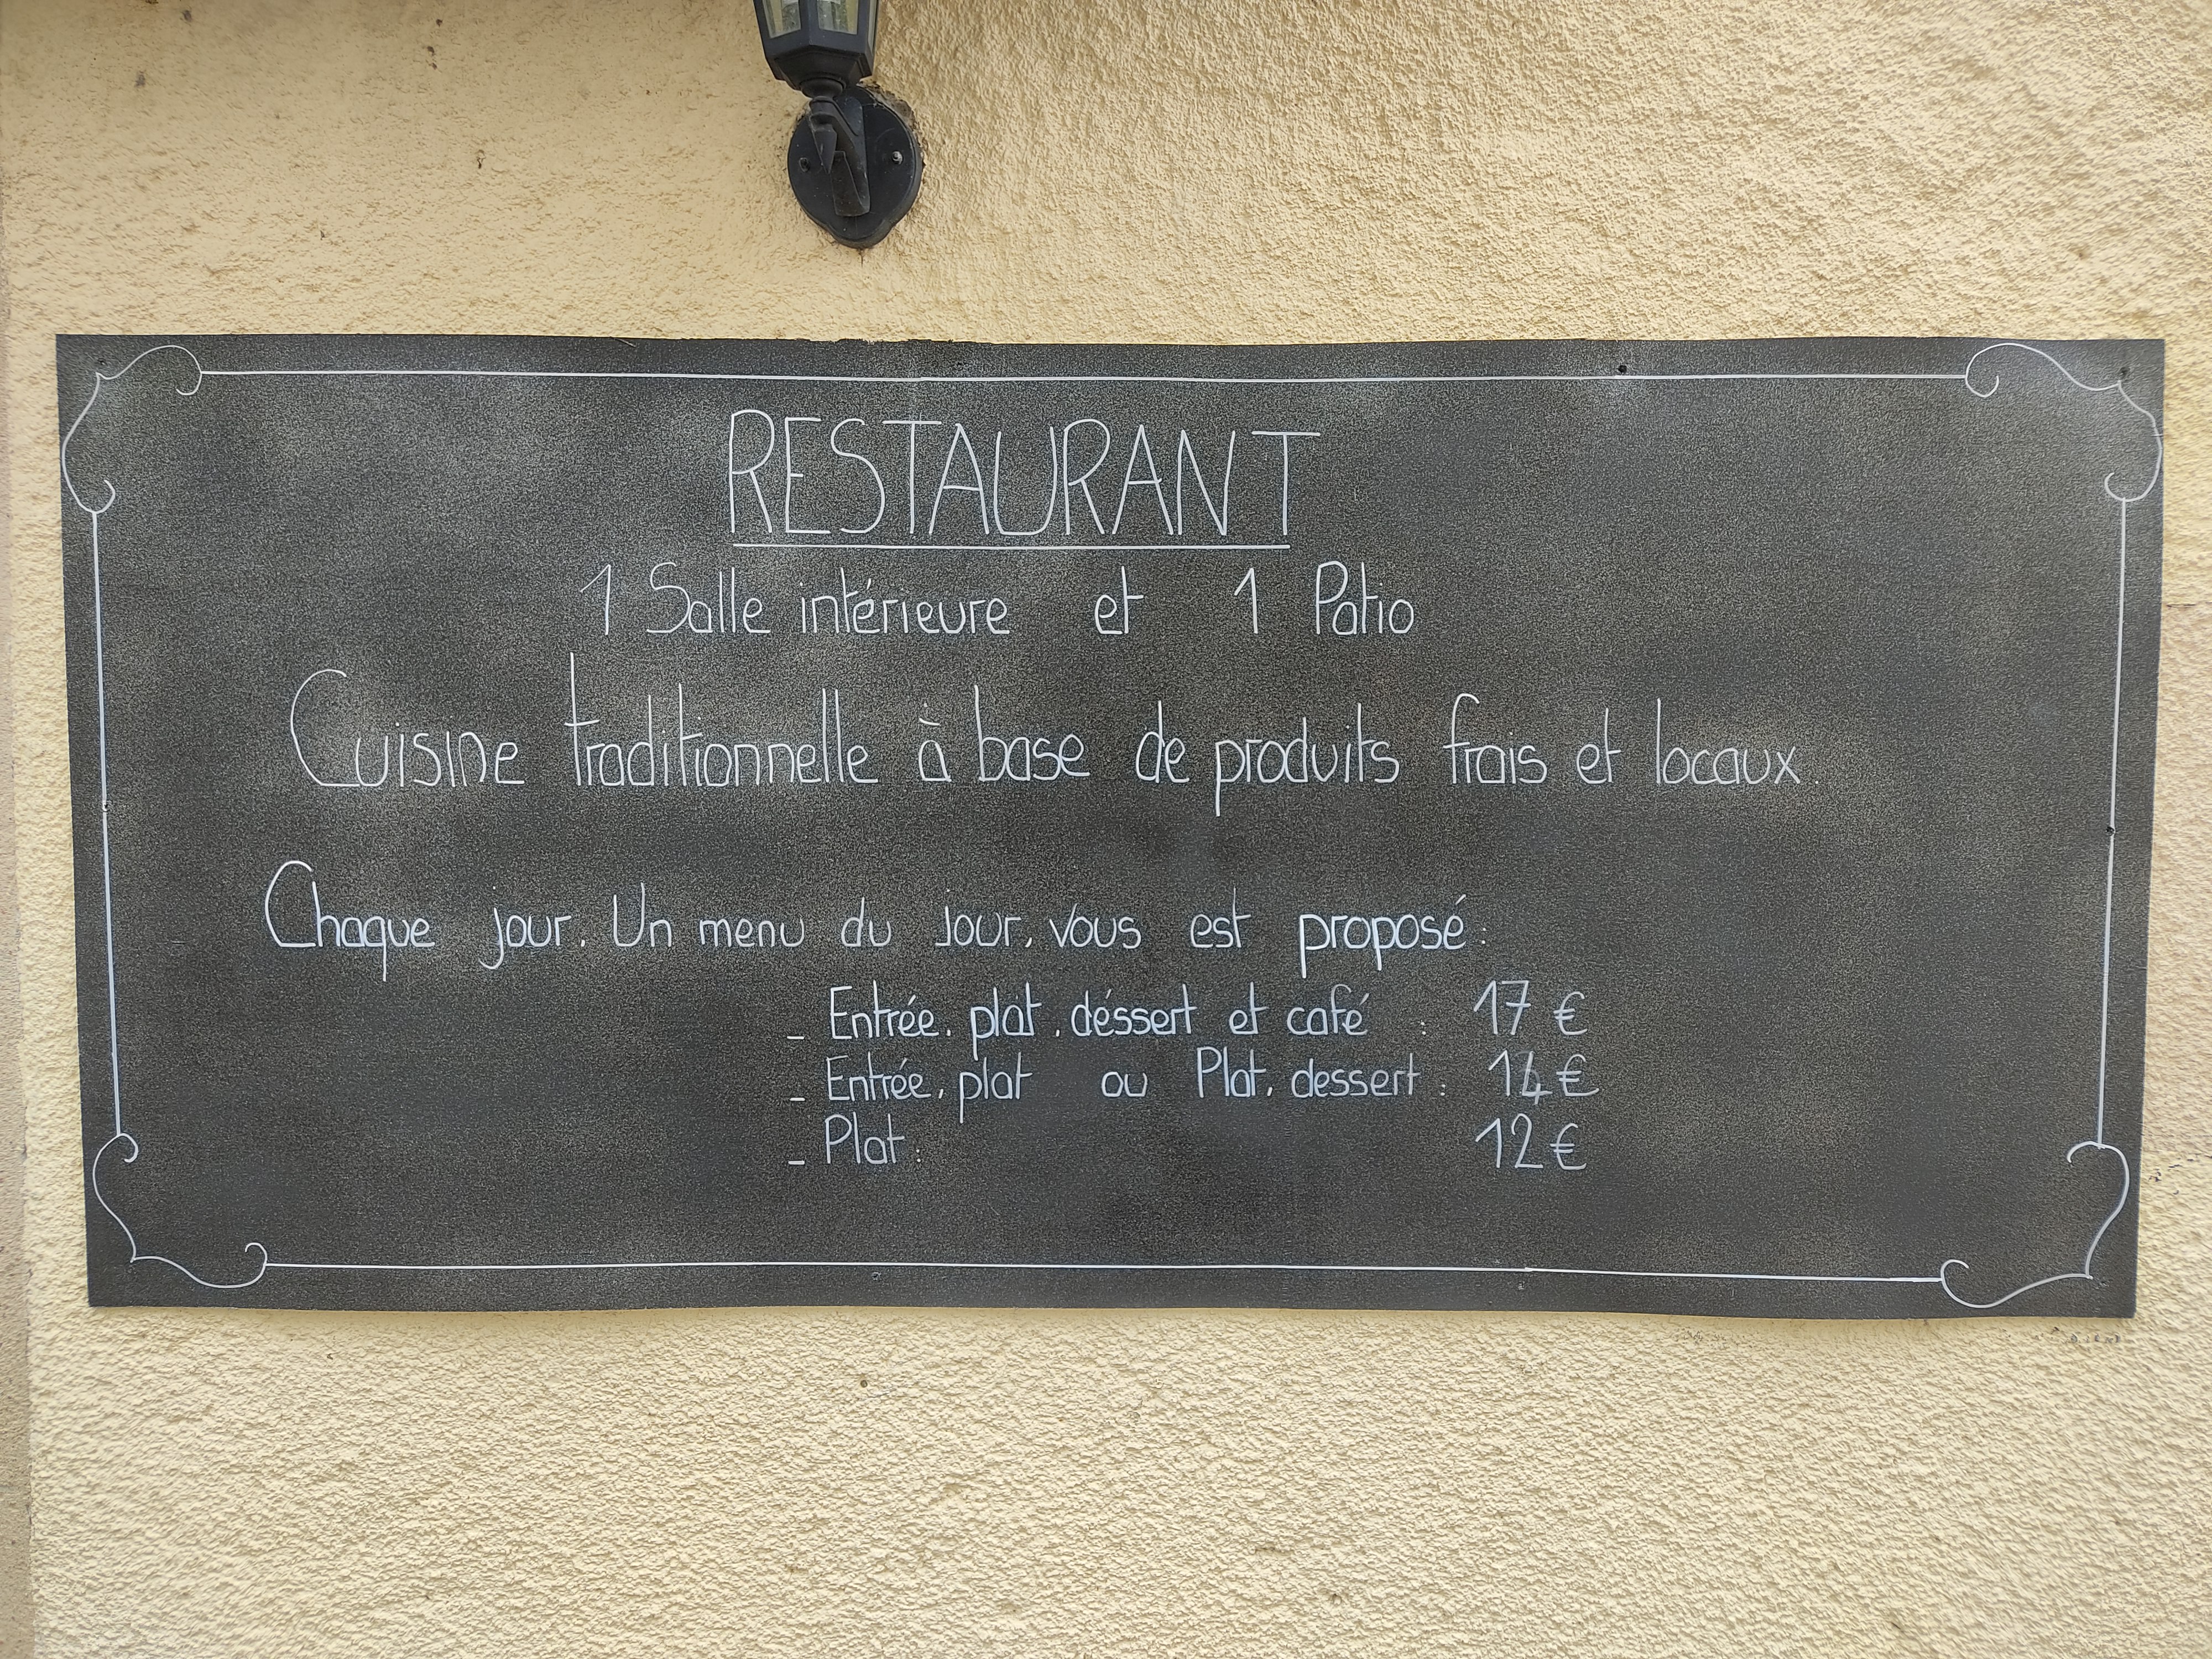 RESTAURANT
1 Salle intérieure et 1 Patio
Cuisine traditionnelle à base de produits frais et locaux.
Chaque jour, Un menu du jour, vous est proposé:
_ Entrée, plat, déssert et café : 17 €
_ Entrée, plat ou Plat, dessert : 14 €
_ Plat: 12 €